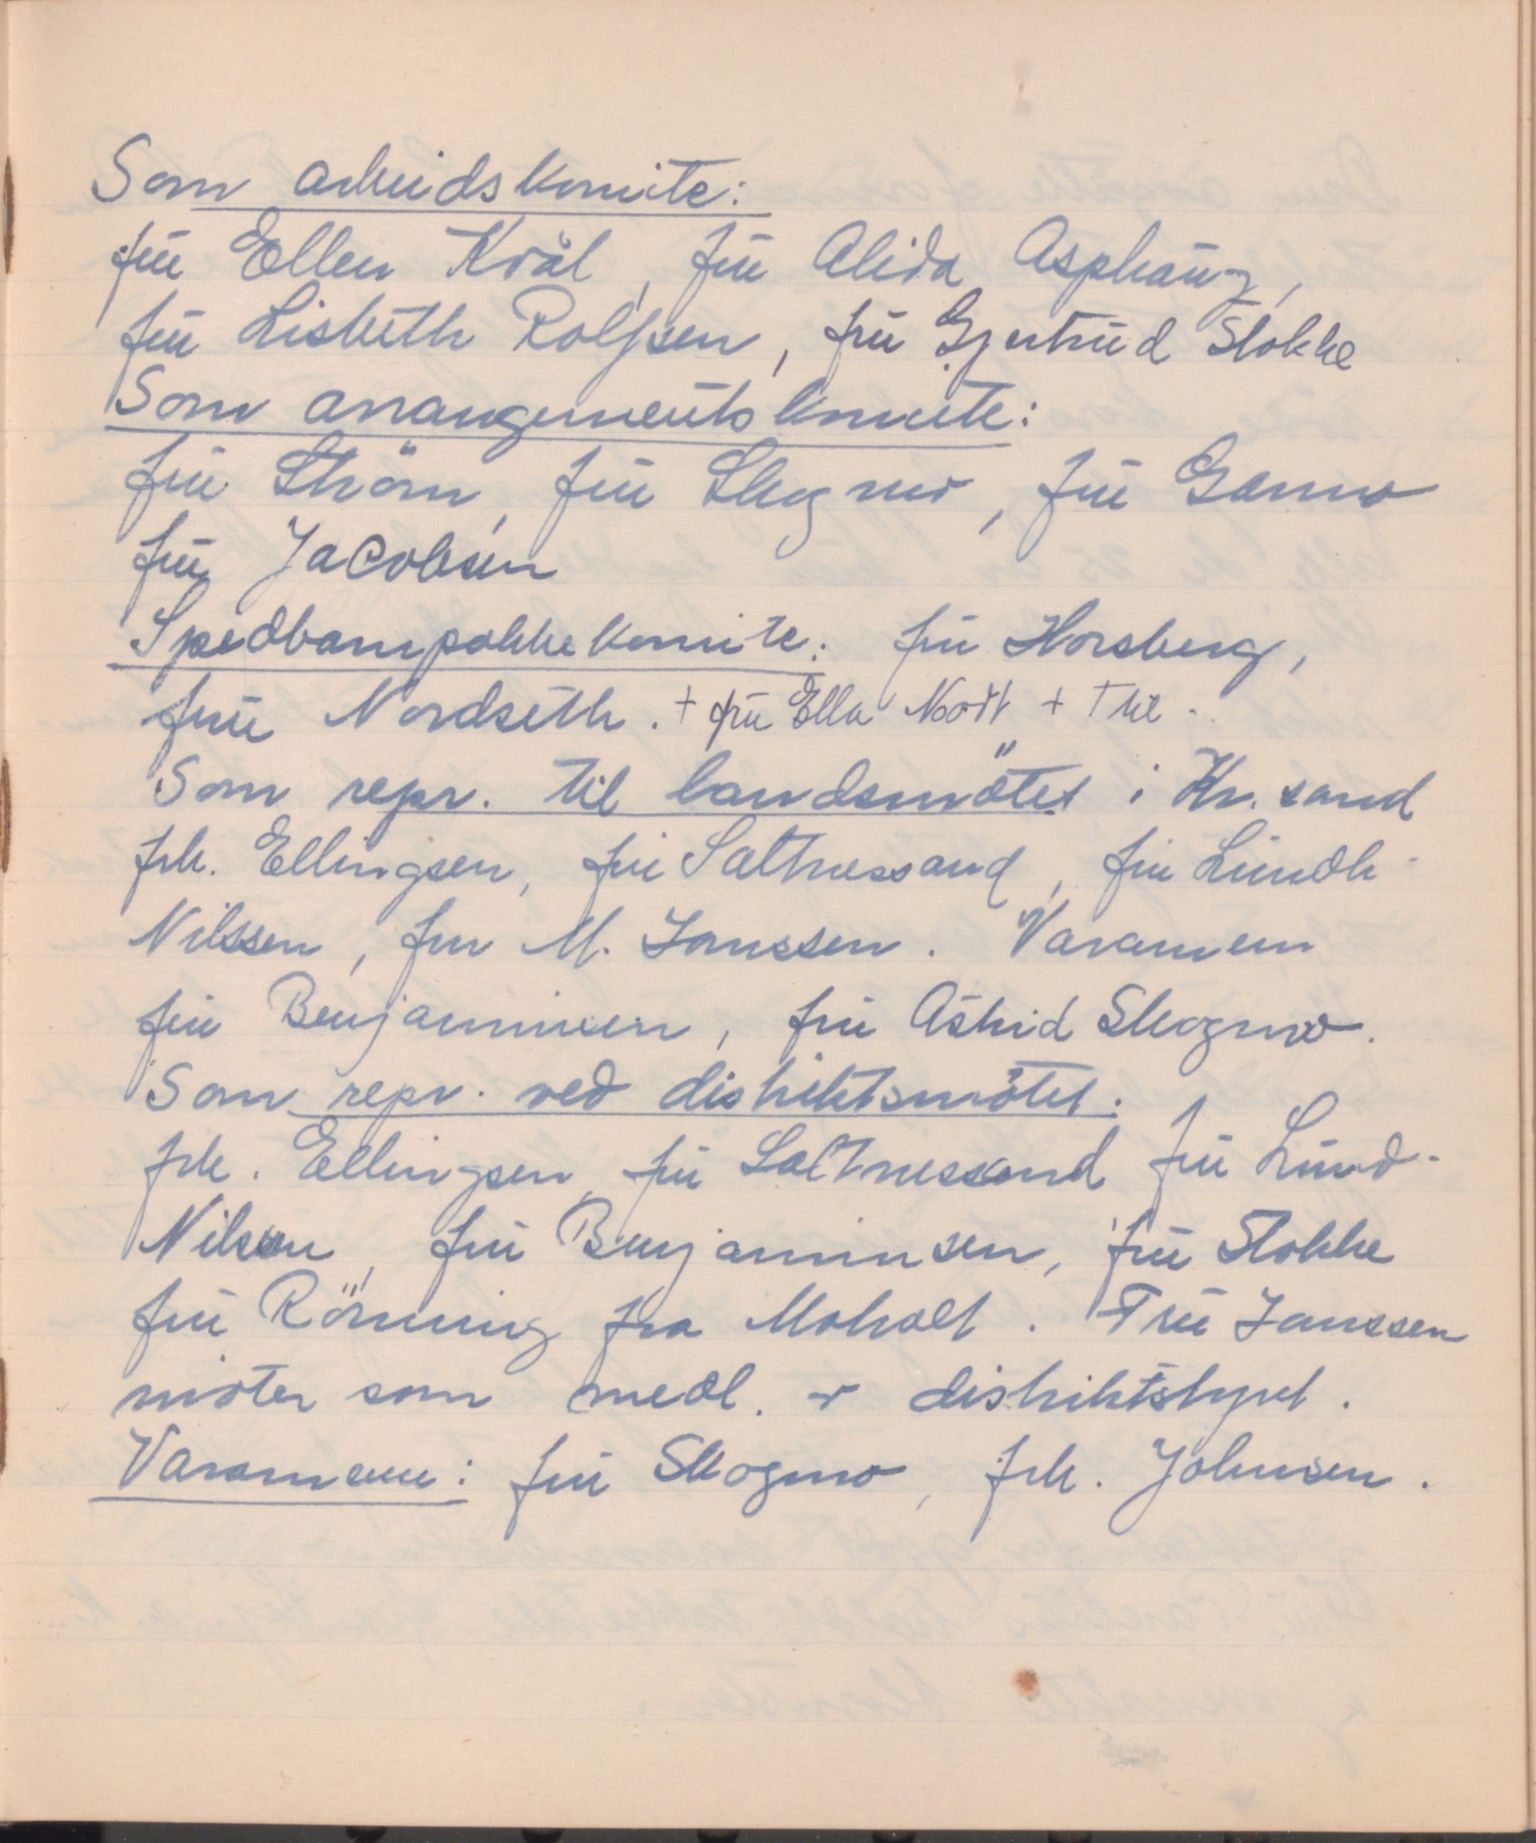 Som arbeidskomite:
fru Ellen Kvål, fru Alida Asphaug,
fru Lisbeth Rolfsen, fru Gjertrud Stokke
Som arrangementskomite:
fru Ström, fru Skogmo, fru Ganmo
fru Jacobsen
Spedbarnpakkekomite: fru Horsberg,
fru Nordseth. + fru Ella Nordt +
Som repr. til landsmötet i Kr.sand
frk. Ellingsen, fru Saltnessand, fru Lundh-
Nilssen, fru M. Janssen. Varamenn
fru Benjaminsen, fru Astrid Skogmo.
Som repr. ved distriktsmötet.
frk. Ellingsen, fru Saltnessand fru Lund-
Nilssen, fru Benjaminsen, fru Stokke
fru Rönning fra Moholt. Fru Janssen
möter som medl. av distriktstyret.
Varamenn: fru Skogmo, frk. Johnsen.